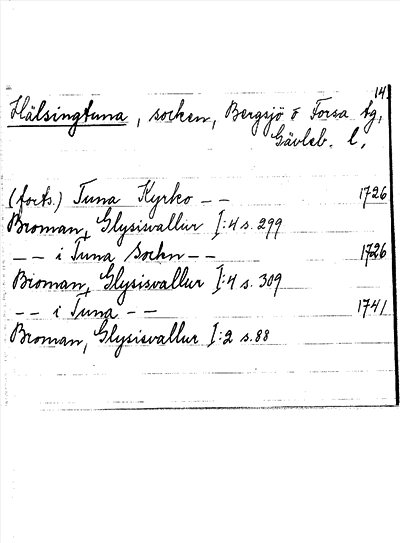 14.
Hälsingtuna, socken, Bergsjö o Forsa tg,
Gävleb. l.
(forts.) Tuna Kyrko -- 1726
Broman, Glysisvallur I:4 s. 299
-- i Tuna Sockn -- 1726
Broman, Glysisvallur I:4 s. 309
-- i Tuna -- 1741
Broman, Glysisvallur I:2 s. 88